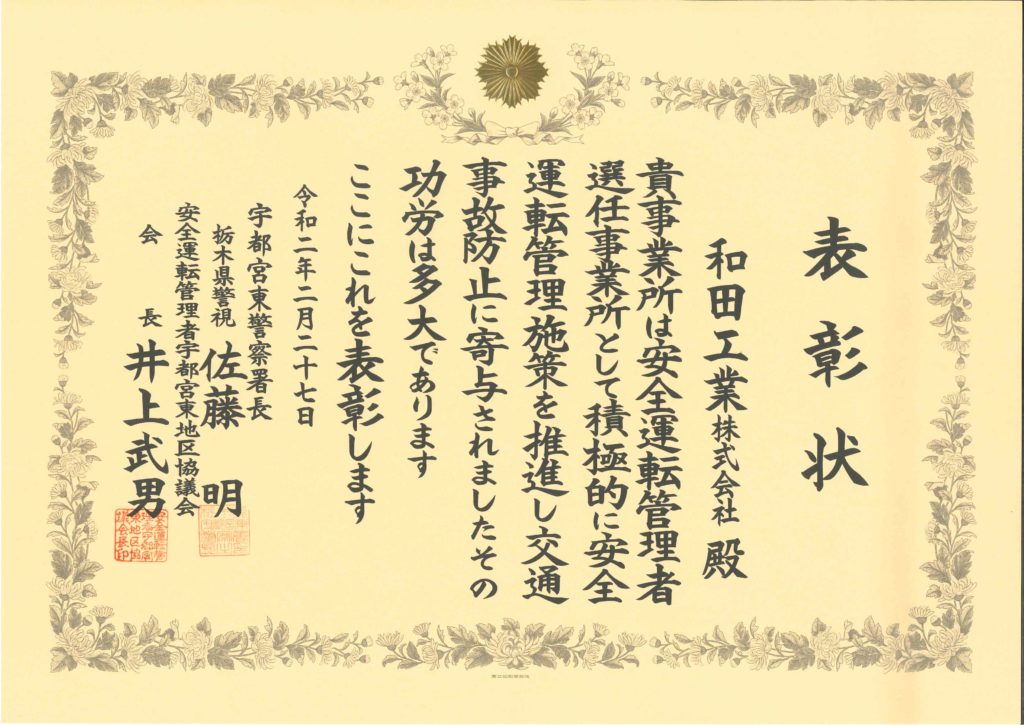 表彰状
和田工業株式会社 殿
貴事業所は安全運転管理者
選任事業所として積極的に安全
運転管理施策を推進し交通
事故防止に寄与されましたその
功労は多大であります
ここにこれを表彰します
令和二年二月二十七日
宇都宮東警察署長
栃木県警視 佐藤 明
安全運転管理者宇都宮東地区協議会
会長 井上武男